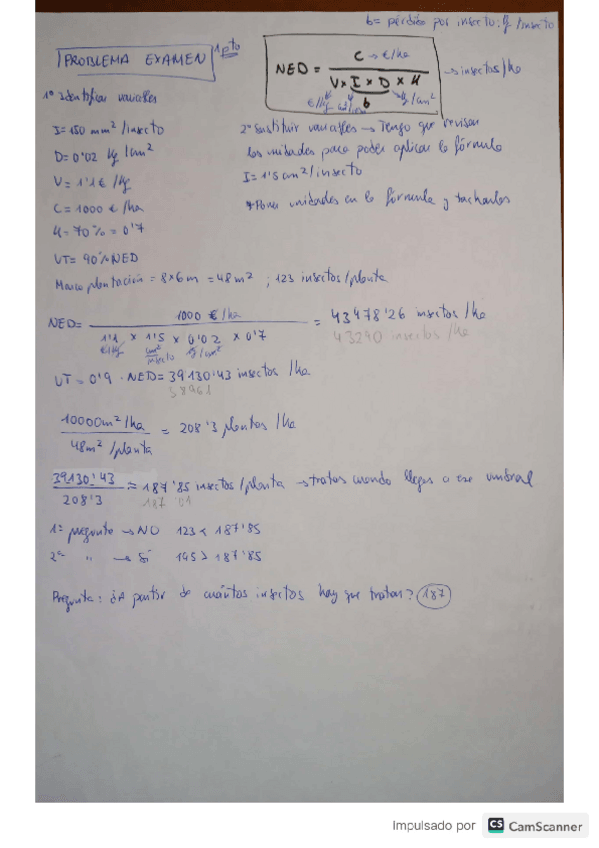 b = pérdida por insecto: Kg/insecto
PROBLEMA EXAMEN 1 pto
NED = C → €/ha / V x I x D x K → insectos/ha
€/Kg b Kg/cm²
1º Identificar variables
I = 150 mm²/insecto
D = 0'02 Kg/cm²
V = 1'1 € /Kg
C = 1000 € /ha
K = 70% = 0'7
UT = 90% NED
2º Sustituir variables → Tengo que revisar
las unidades para poder aplicar la fórmula
I = 1'5 cm²/insecto
* Poner unidades en la fórmula y tacharlas
Marco plantación = 8x6 m = 48 m² ; 123 insectos/planta
NED = 1000 €/ha / 1'1 x 1'5 x 0'02 x 0'7 = 43478'26 insectos/ha
€/Kg cm²/insecto Kg/cm² 43290 insectos/ha
UT = 0'9 · NED = 39130'43 insectos /ha
38961
10000 m² /ha / 48 m² /planta = 208'3 plantas /ha
39130'43 / 208'3 ≈ 187'85 insectos/planta → tratas cuando llegas a ese umbral
187'01
1ª pregunta → NO 123 < 187'85
2ª " → Sí 195 > 187'85
Pregunta: ¿A partir de cuántos insectos hay que tratar? 187
Impulsado por CS CamScanner